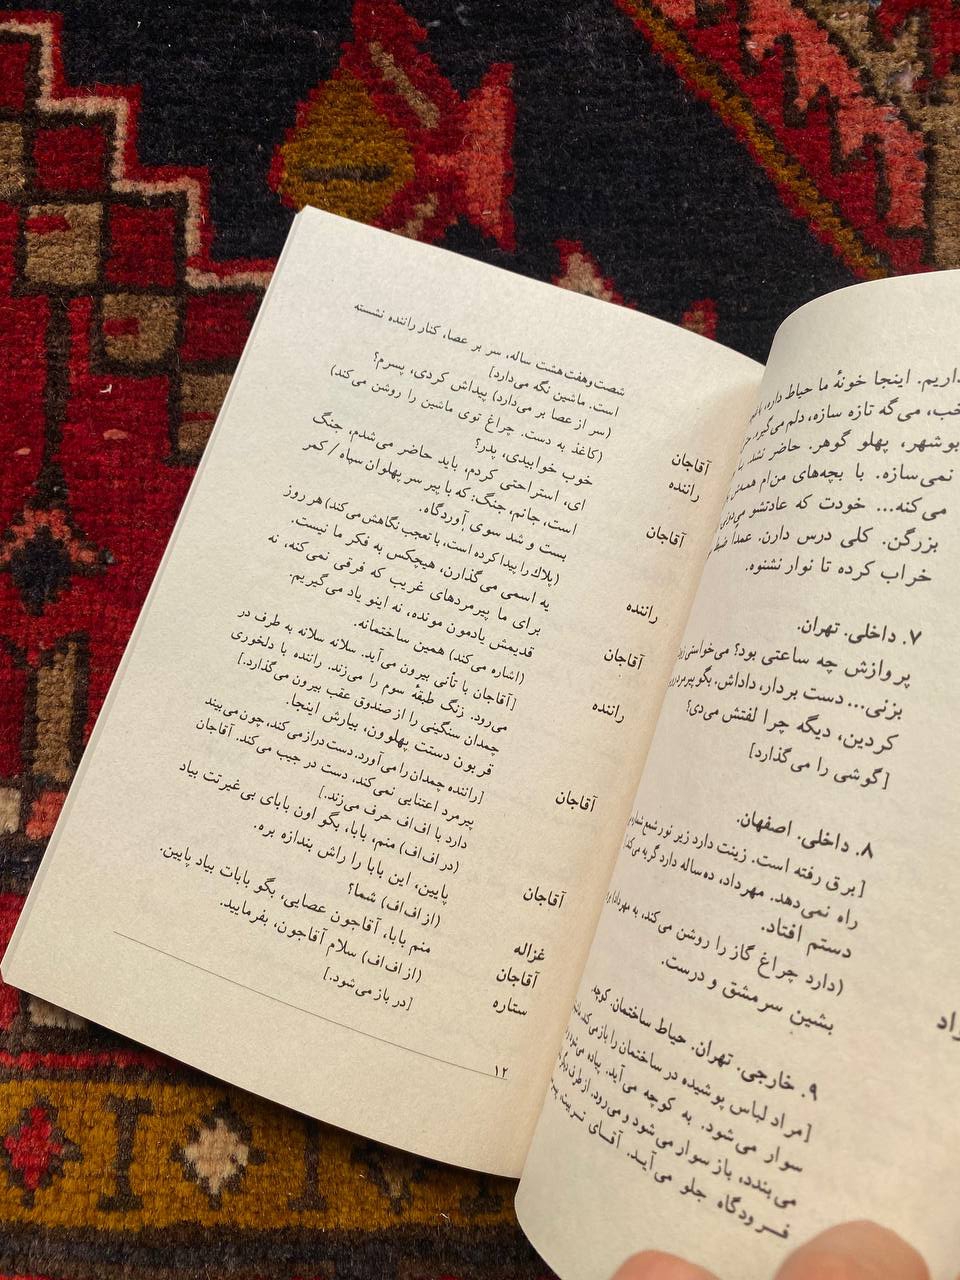 داریم. اینجا خونهٔ ما حیاط داره،
خب، می‌گه تازه سازه، دلم می‌گیره.
بوشهر، پهلو گوهر. حاضر نشد.
نمی‌سازه. با بچه‌های من‌ام همه‌ش
می‌کنه... خودت که عادتشو می‌دونی
بزرگن. کلی درس دارن. عمداً ضبط
خراب کرده تا نوار نشنوه.
۷. داخلی. تهران.
پروازش چه ساعتی بود؟ می‌خواستی
بزنی... دست بردار، داداش. بگو پیرمرد
کردین، دیگه چرا لفتش می‌دی؟
[گوشی را می‌گذارد]
۸. داخلی. اصفهان.
[برق رفته است. زینت دارد زیر نور شمع
راه نمی‌دهد. مهرداد، ده‌ساله دارد گربه می‌کند
دستم افتاد.
(دارد چراغ گاز را روشن می‌کند، به مهرداد)
بشین سر مشق و درست.
۹. خارجی. تهران. حیاط ساختمان. کوچه.
[مراد لباس پوشیده در ساختمان را باز می‌کند
سوار می‌شود. به کوچه می‌آید. پیاده می‌شود
می‌بندد، باز سوار می‌شود و می‌رود. از طرف دیگر
فرودگاه جلو می‌آید. آقای تربیت،
شصت‌وهفت‌هشت ساله، سر بر عصا، کنار راننده نشسته
است. ماشین نگه می‌دارد]
آقاجان (سر از عصا بر می‌دارد) پیداش کردی، پسرم؟
راننده (کاغذ به دست. چراغ توی ماشین را روشن می‌کند)
خوب خوابیدی، پدر؟
آقاجان ای، استراحتی کردم، باید حاضر می‌شدم، جنگ
است، جانم، جنگ: که با پیر سر پهلوان سپاه / کمر
بست و شد سوی آوردگاه.
راننده (پلاک را پیدا کرده است، با تعجب نگاهش می‌کند) هر روز
یه اسمی می‌گذارن، هیچکس به فکر ما نیست.
آقاجان برای ما پیرمردهای غریب که فرقی نمی‌کنه، نه
قدیمش یادمون مونده، نه اینو یاد می‌گیریم.
راننده (اشاره می‌کند) همین ساختمانه.
[آقاجان با تأنی بیرون می‌آید. سلانه سلانه به طرف در
می‌رود. زنگ طبقهٔ سوم را می‌زند. راننده با دلخوری
چمدان سنگینی را از صندوق عقب بیرون می‌گذارد.]
آقاجان قربون دستت پهلوون، بیارش اینجا.
[راننده چمدان را می‌آورد. دست دراز می‌کند، چون می‌بیند
پیرمرد اعتنایی نمی‌کند، دست در جیب می‌کند. آقاجان
دارد با اف‌اف حرف می‌زند.]
آقاجان (در اف‌اف) منم، بابا، بگو اون بابای بی‌غیرتت بیاد
پایین، این بابا را راش بندازه بره.
غزاله (از اف‌اف) شما؟
آقاجان منم بابا، آقاجون عصایی، بگو بابات بیاد پایین.
ستاره (از اف‌اف) سلام آقاجون، بفرمایید.
[در باز می‌شود.]
۱۲